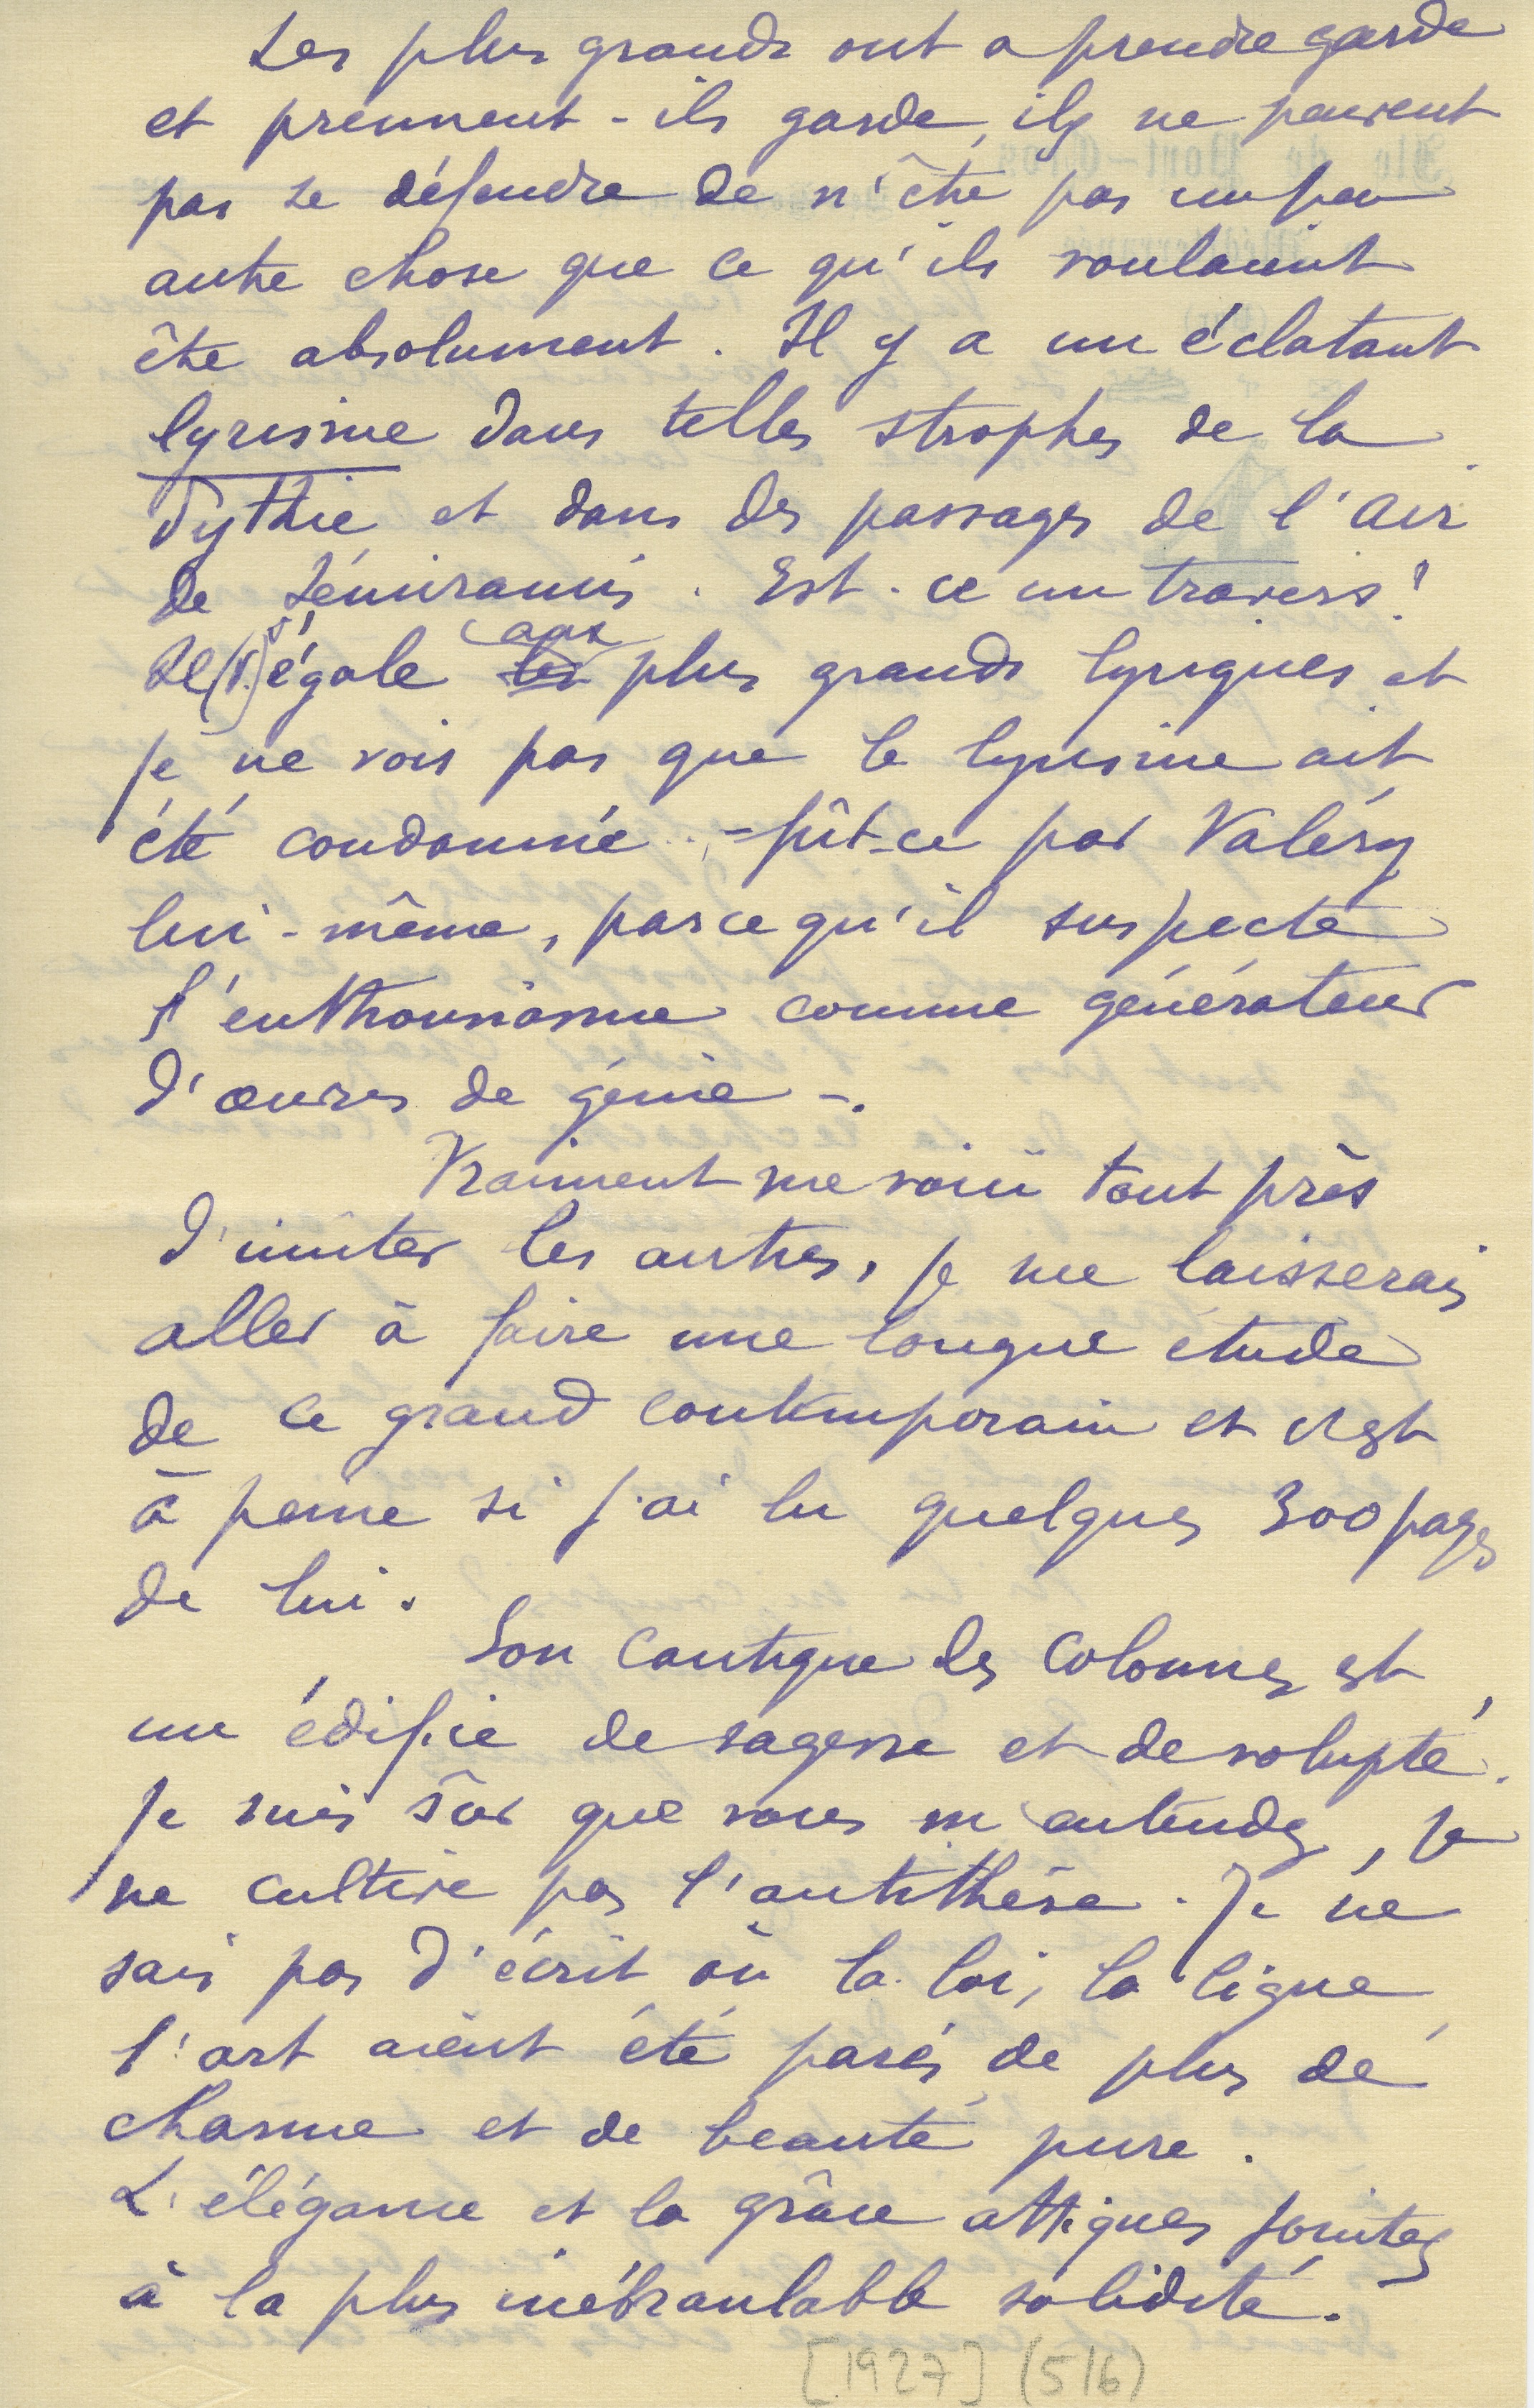 Les plus grands ont a prendre garde
et prennent-ils garde, ils ne peuvent
pas se défendre de n'être pas un peu
autre chose que ce qu'ils voulaient
être absolument. Il y a un éclatant
lyrisme dans telles strophes de la
Pythie et dans des passages de l'Air
de Sémiramis. Est-ce un travers?
Il (V.) s'égale aux les plus grands lyriques et
je ne vois pas que le lyrisme ait
été condamné - fût-ce par Valéry
lui-même, parce qu'il suspecte
l'enthousiasme comme générateur
d'œuvres de génie -.
Vraiment me voici tout près
d'imiter les autres, je me laisserais
aller à faire une longue étude
de ce grand contemporain et c'est
à peine si j'ai lu quelques 300 pages
de lui.
Son Cantique des Colonnes est
un édifice de sagesse et de volupté.
Je suis sûr que vous m'entendez, je
ne cultive pas l'antithèse. Je ne
sais pas d'écrit où la loi, la ligne
l'art aient été parés de plus de
charme et de beauté pure.
L'élégance et la grâce attiques jointes
à la plus inébranlable solidité.
[1927] (5/6)